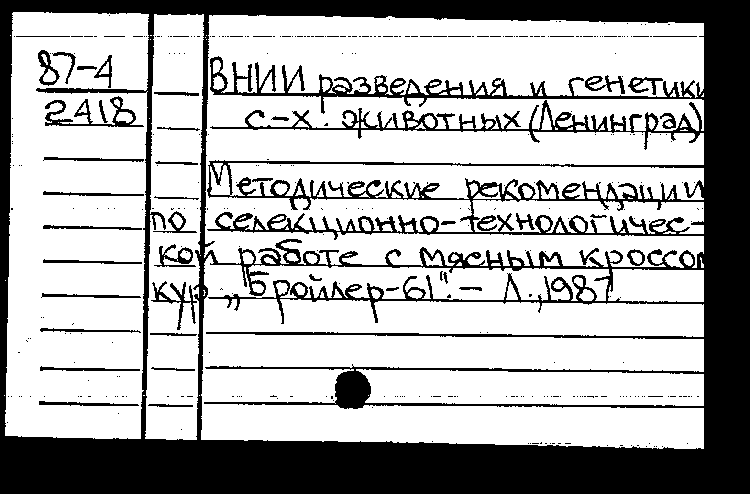 87-4
2418
ВНИИ разведения и генетики
с.-х. животных (Ленинград)
Методические рекомендации
по селекционно-технологичес-
кой работе с мясным кроссом
кур „Бройлер-61". - Л., 1987.